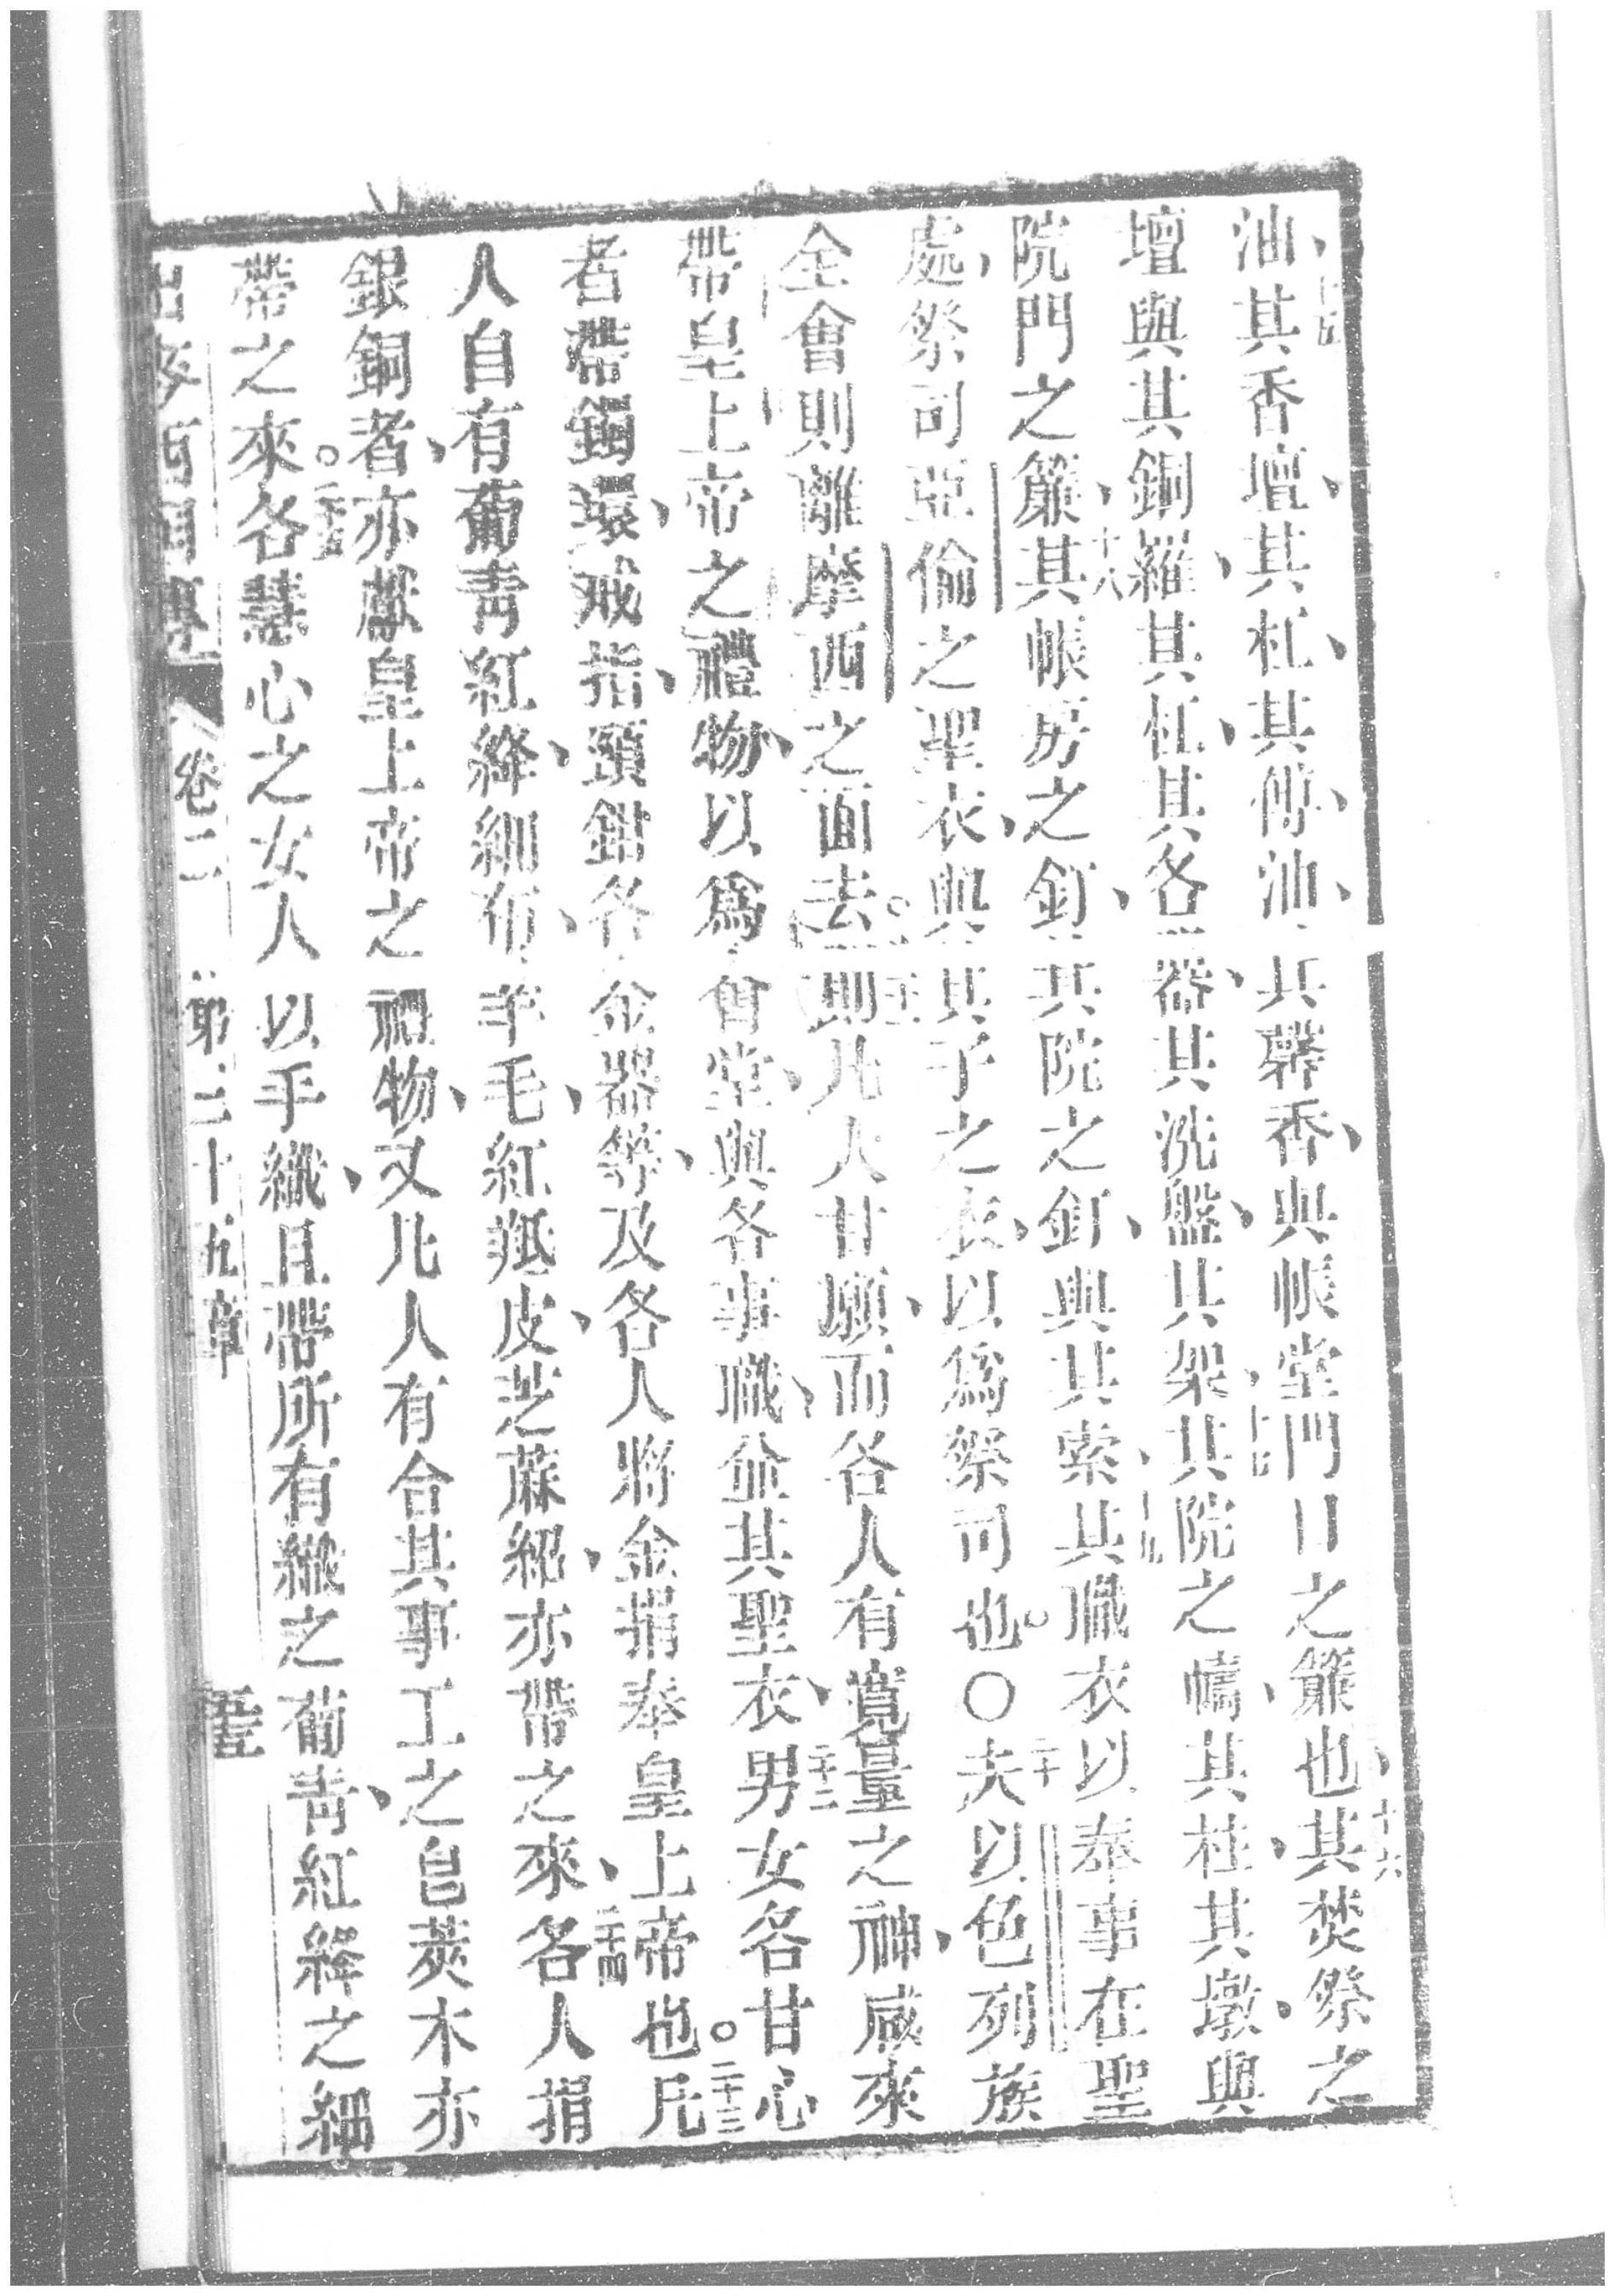 油其香壇其杠其傅油其馨香與帳堂門口之簾也其焚祭之
壇與其銅羅其杠其各器其洗盤其架其院之幬其柱其墩與
院門之簾其帳房之釘其院之釘與其索其職衣以奉事在聖
處祭司亞倫之聖衣與其子之衣以為祭司也○夫以色列族
全會則離摩西之面去則凡人甘願而各人有寬量之神咸來
帶皇上帝之禮物以為會堂與各事職並其聖衣男女各甘心
者帶鐲環戒指頸鉗各金器等及各人將金捐奉皇上帝也凡
人自有葡青紅絳細布羊毛紅羝皮芝蔴䌷亦帶之來各人捐
銀銅者亦獻皇上帝之禮物又凡人有合其事工之皀莢木亦
帶之來各慧心之女人以手織且帶所有織之葡青紅絳之細
出麥西國傳 卷二 第三十五章